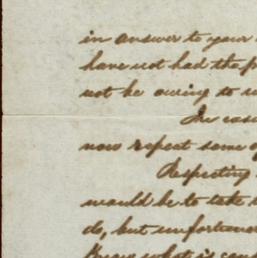 in answer to your
have not had the
not be owing to
In case
now repeat some
Respecting
would be to take
do, but unfortuna
Know what is con